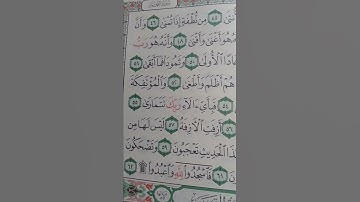 نثَىٰ ٤٥ مِن نُّطْفَةٍ إِذَا تُمْنَىٰ ٤٦ وَأَنَّ
هُوَ أَغْنَىٰ وَأَقْنَىٰ ٤٨ وَأَنَّهُۥ هُوَ رَبُّ
ادًا ٱلْأُولَىٰ ٥٠ وَثَمُودَا۟ فَمَآ أَبْقَىٰ ٥١
هُمْ أَظْلَمَ وَأَطْغَىٰ ٥٢ وَٱلْمُؤْتَفِكَةَ
٥٤ فَبِأَيِّ ءَالَآءِ رَبِّكَ تَتَمَارَىٰ ٥٥
٥٦ أَزِفَتِ ٱلْءَازِفَةُ ٥٧ لَيْسَ لَهَا مِن
ذَا ٱلْحَدِيثِ تَعْجَبُونَ ٥٩ وَتَضْحَكُونَ
٦١ فَٱسْجُدُوا۟ لِلَّهِ وَٱعْبُدُوا۟ ۩ ٦٢